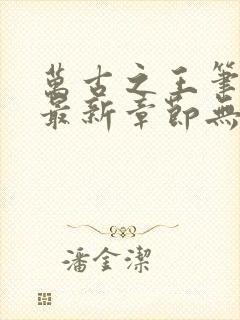 萬古之王筆
最新章節無
潘金潔